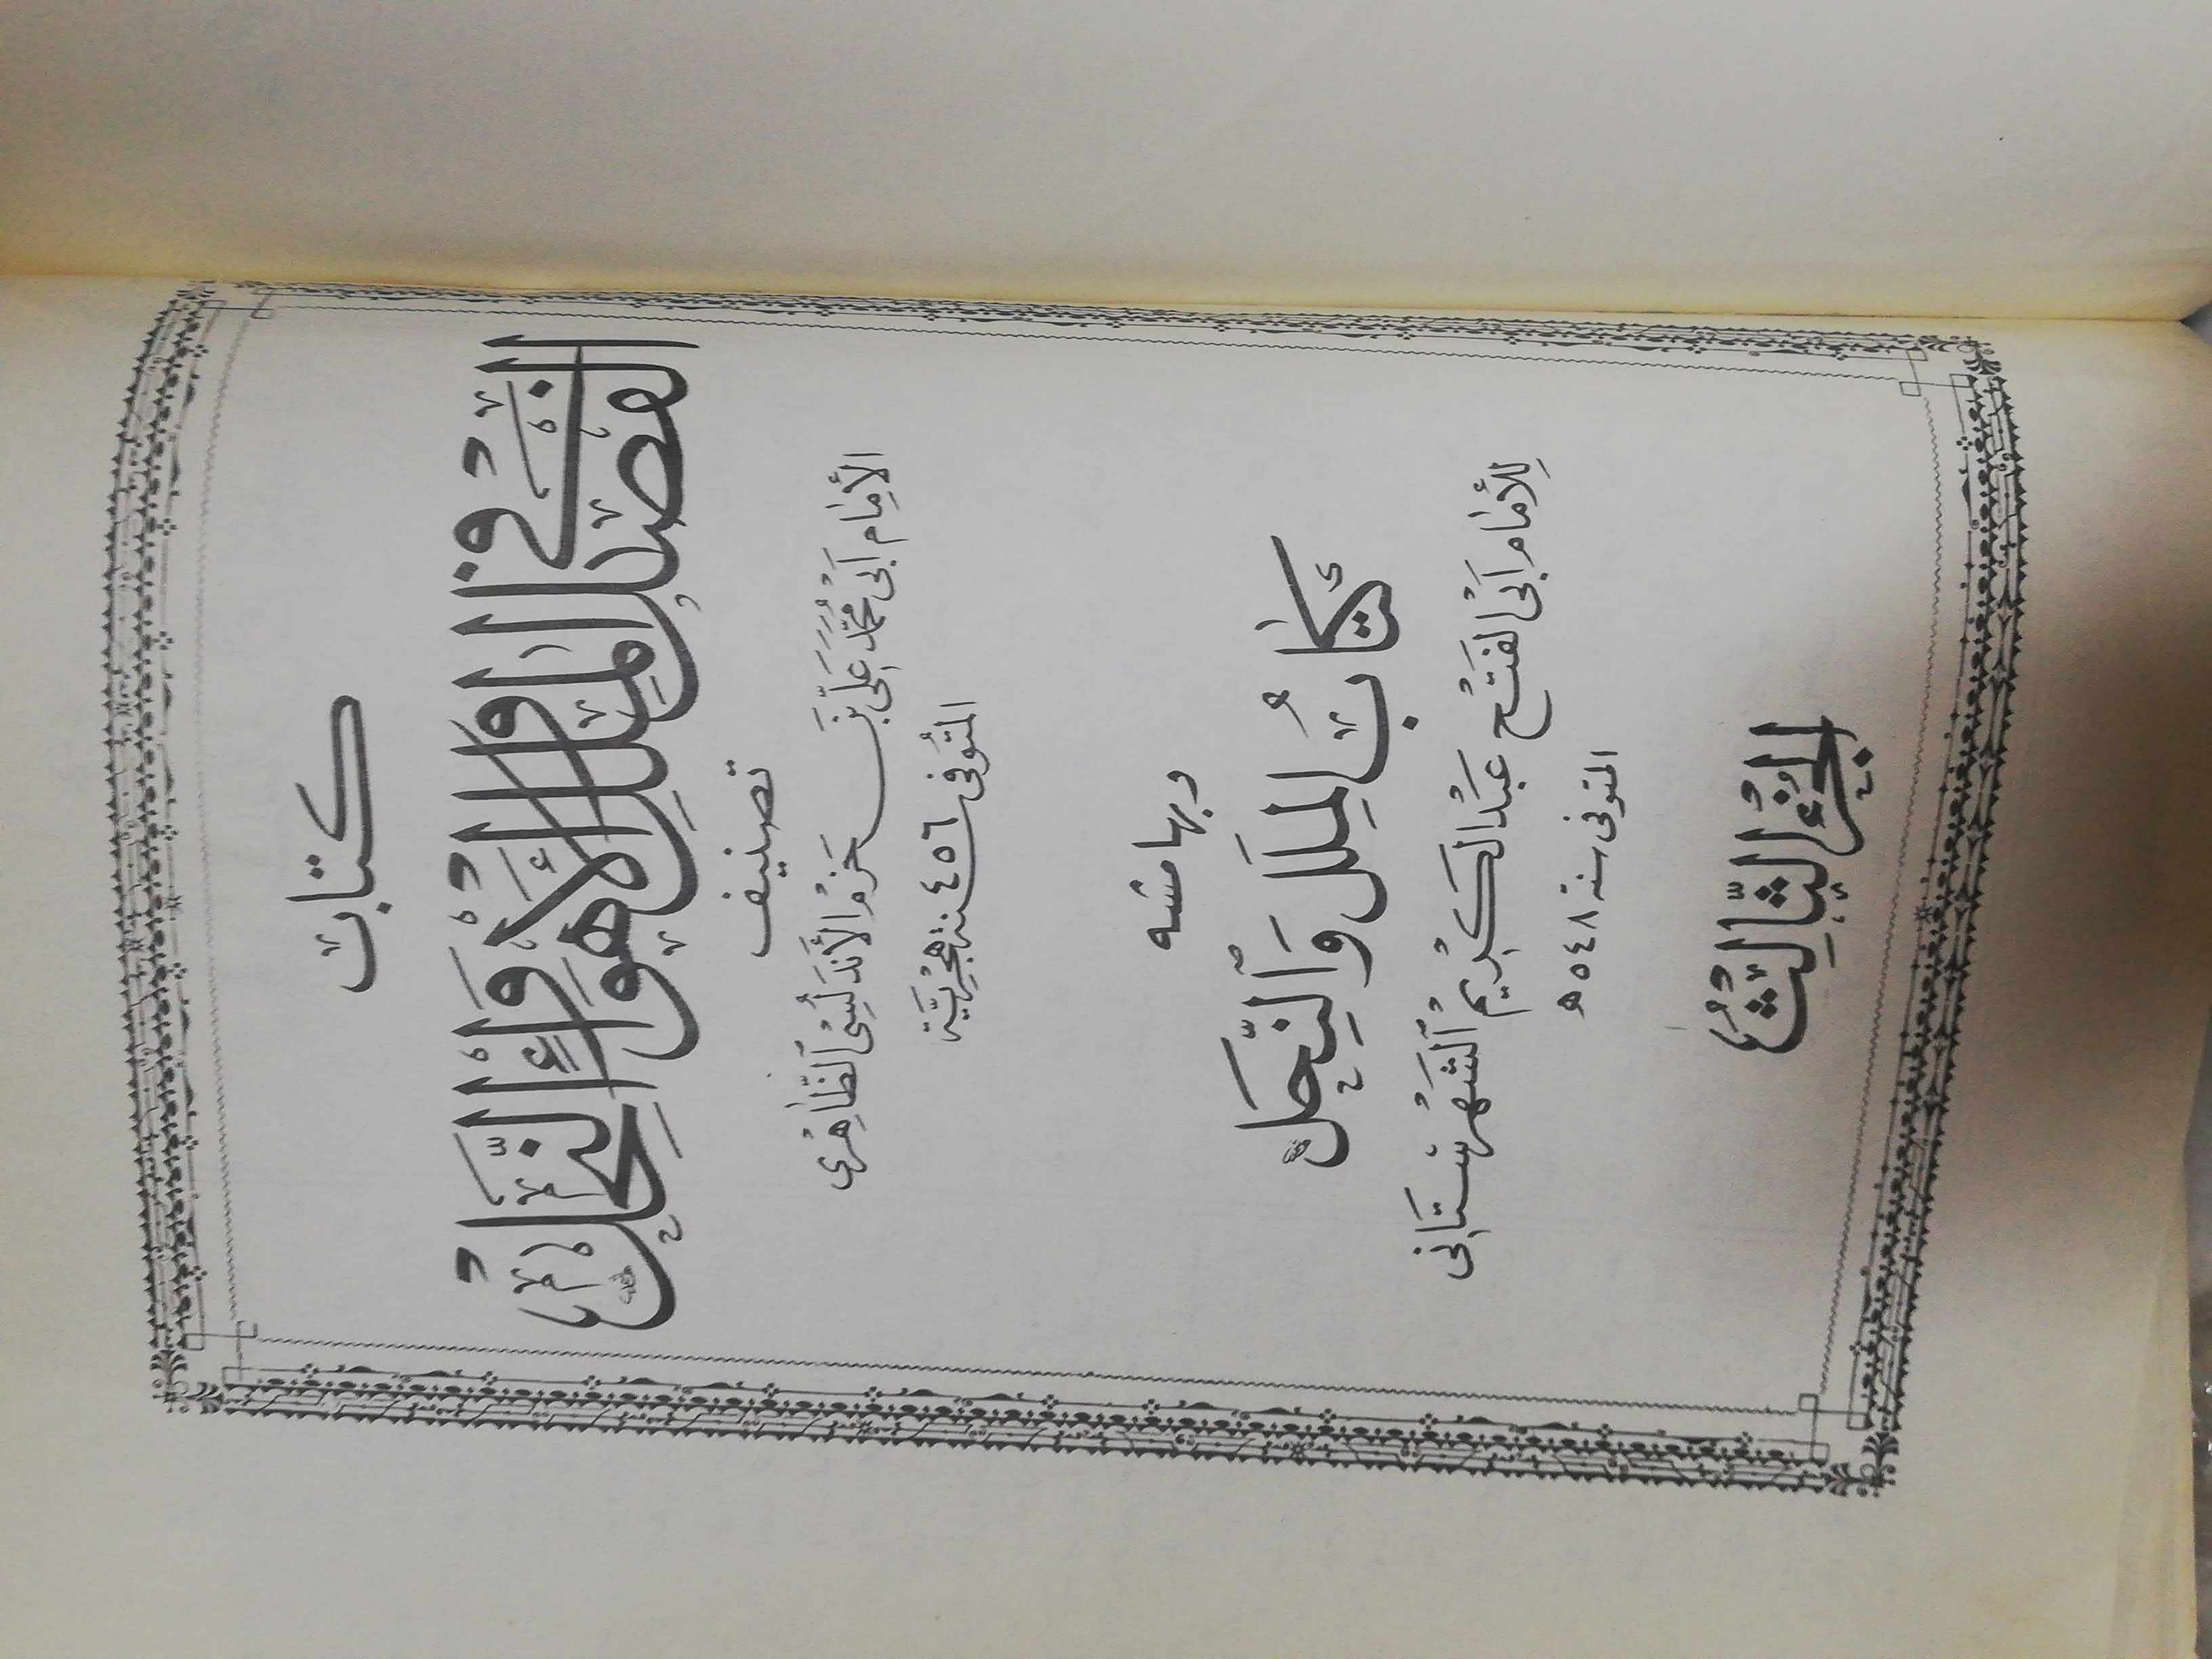 كتاب
الفصل في الملل والأهواء والنحل
تصنيف
الأمام أبى محمد على بن حزم الأندلسى الظاهرى
المتوفى سنة ٤٥٦ هجرية
وبهامشه
كتاب الملل والنحل
للأمام أبى الفتح عبد الكريم الشهرستانى
المتوفى سنة ٥٤٨ ه
الجزء الثالث